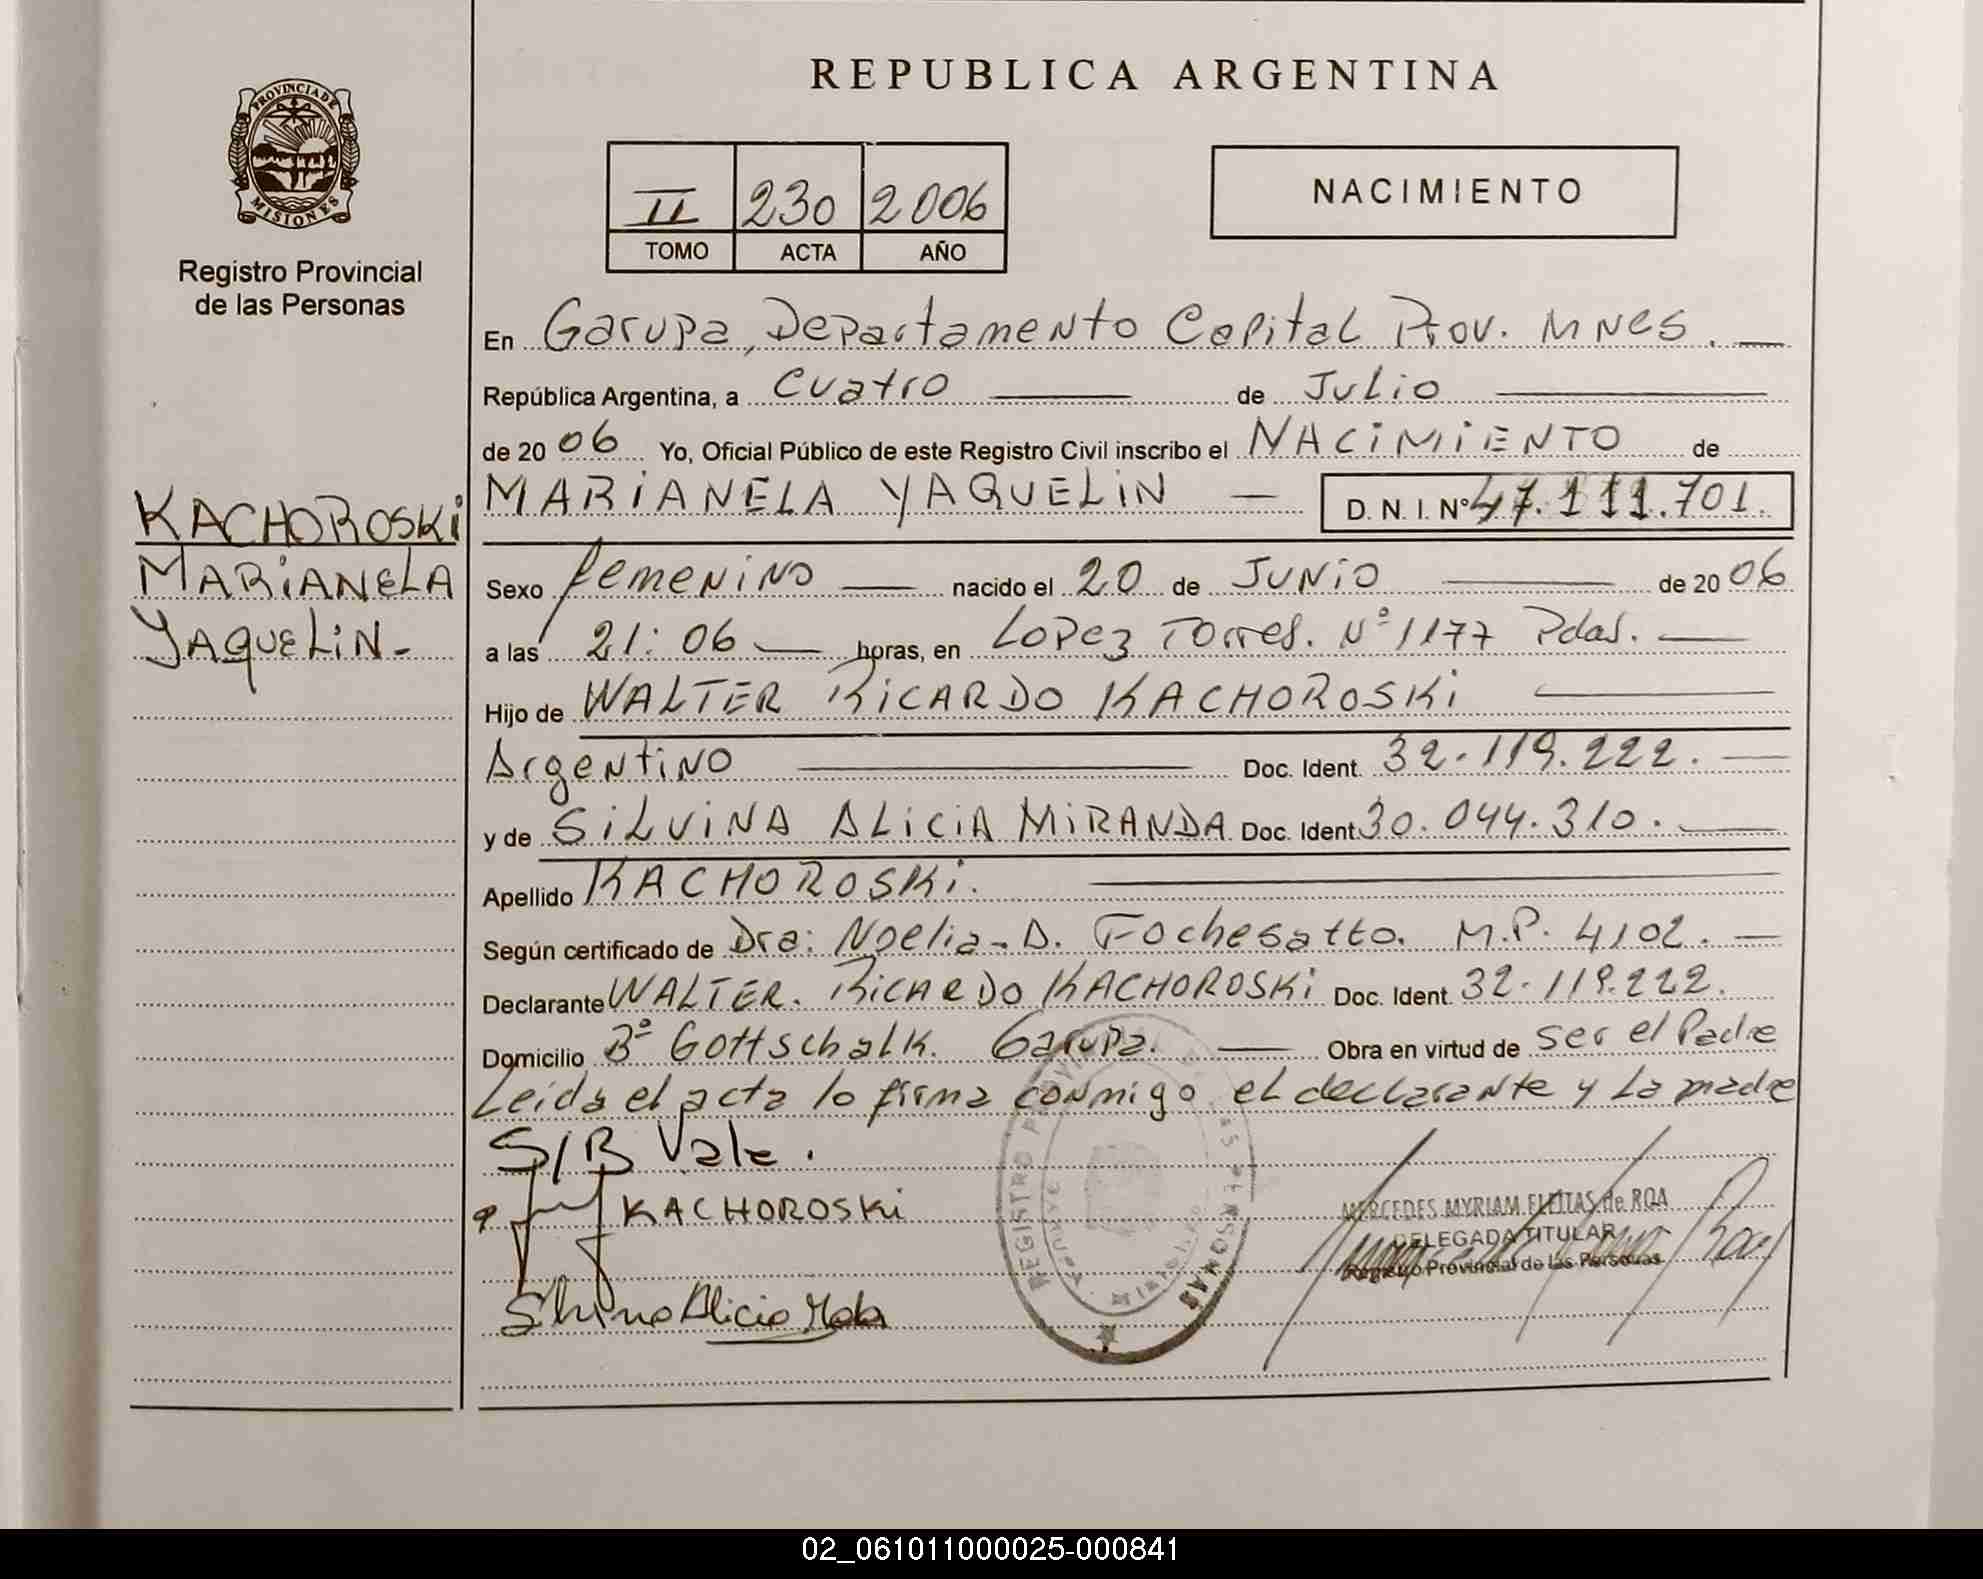 REPUBLICA ARGENTINA
PROVINCIA DE
MISIONES
Registro Provincial
de las Personas
II 230 2006
TOMO ACTA AÑO
NACIMIENTO
KACHOROSKI
MARIANELA
YAQUELIN-
En Garupa, Departamento Capital Prov. MNES.
República Argentina, a cuatro de Julio
de 2006 Yo, Oficial Público de este Registro Civil inscribo el NACIMIENTO de
MARIANELA YAQUELIN D.N.I. Nº 47.111.701.
Sexo femenino nacido el 20 de JUNIO de 2006
a las 21:06 horas, en Lopez Torres. Nº 1177 Pdas.
Hijo de WALTER RICARDO KACHOROSKI
Argentino Doc. Ident. 32.119.222.
y de SILVINA ALICIA MIRANDA Doc. Ident. 30.044.310.
Apellido KACHOROSKI.
Según certificado de Dra: Noelia-D. Fochesatto. M.P. 4102.
Declarante WALTER. RICARDO KACHOROSKI Doc. Ident. 32.119.222.
Domicilio Bº Gottschalk. Garupa. Obra en virtud de ser el Padre
Leida el acta lo firma conmigo el declarante y la madre
S/B Vale.
KACHOROSKI
MERCEDES MYRIAM FLEITAS de ROA
DELEGADA TITULAR
Registro Provincial de las Personas
REGISTRO PROVINCIAL DE LAS PERSONAS
02_061011000025-000841